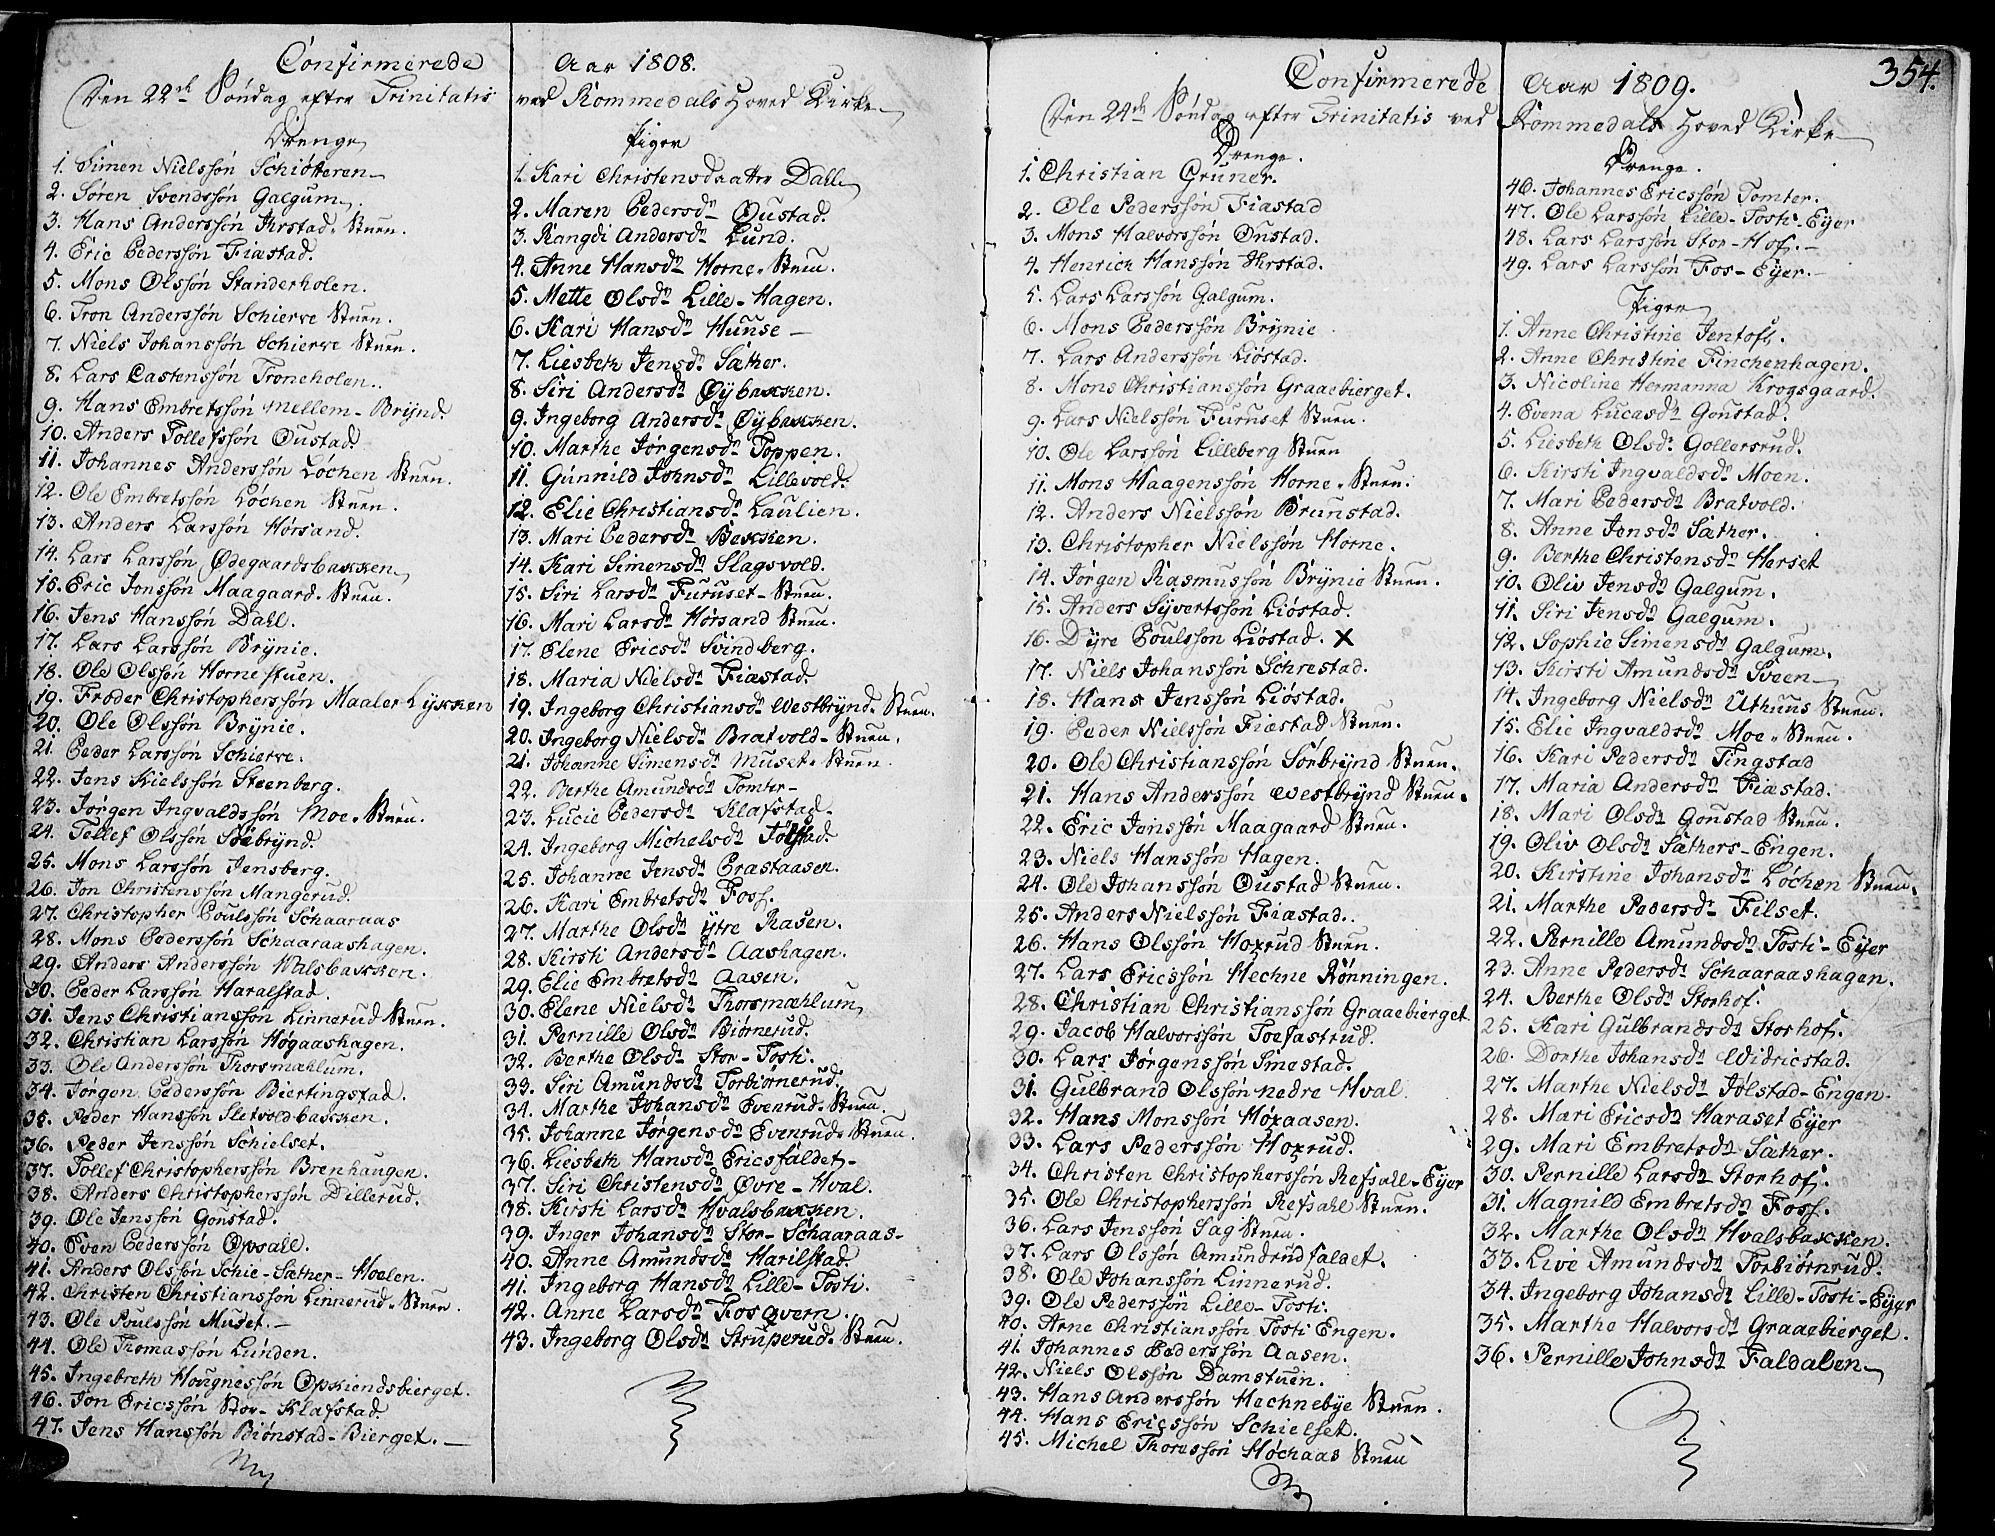 Confirmerede
Den 22de Söndag efter Trinitatis
Drenge
1. Simen Nielssön Schiötteren
2. Sören Svendssön Galgum.
3. Hans Anderssön Ihrstad. Stuen.
4. Eric Pederssön Fiæstad.
5. Mons Olssön Standerholen.
6. Tron Anderssön Schierre Stuen.
7. Niels Johanssön Schierre Stuen.
8. Lars Castenssön Troneholen.
9. Hans Embretssön mellem-Brÿnd.
10. Anders Tollefssön Oustad
11. Johannes Anderssön Löchen Stuen.
12. Ole Embretssön Löchen Stuen.
13. Anders Larssön Hörsand.
14. Lars Larssön Ødegaardsbakken
15. Eric Jonssön Maagaard. Stuen.
16. Jens Hanssön Dahl.
17. Lars Larssön Brÿnie.
18. Ole Olssön Hornestuen.
19. Froder Christopherssön Maaler Lykken
20. Ole Olssön Brÿnie.
21. Peder Larssön Schierre.
22. Jens Kielssön Steenberg.
23. Jörgen Ingvaldssön Moe. Stuen.
24. Tollef Olssön Söebrÿnd.
25. Mons Larssön Jensberg.
26. Jon Christenssön Mangerud.
27. Christopher Poulssön Schaaraas
28. Mons Pederssön Schaaraashagen.
29. Anders Anderssön Hvalsbakken.
30. Peder Larssön Haralstad.
31. Jens Christianssön Linnerud Stuen.
32. Christian Larssön Högaashagen.
33. Ole Anderssön Thorsmæhlum.
34. Jörgen Pederssön Biertingstad.
35. Peder Hanssön Sletvoldbakken.
36. Peder Jenssön Schielset.
37. Tollef Christopherssön Brenhaugen.
38. Anders Christopherssön Dillerud.
39. Ole Jenssön Gonstad.
40. Even Pederssön Opsall.
41. Anders Olssön Schie-Sæther-Hoelen.
42. Christen Christianssön Linnerud. Stuen.
43. Ole Poulssön Muset.
44. Ole Thomassön Lunden.
45. Ingebreth Hougnessön Opkiendsbierget.
46. Jon Ericssön Stor-Klafstad.
47. Jens Hanssön Biönstad-Bierget.
Aar 1808.
ved Rommedals Hoved Kirke
Piger
1. Kari Christensdaatter Dall
2. Maren Pedersdr Oustad.
3. Rangdi Andersdr Lund.
4. Anne Hansdr Horne-Stuen.
5. Mette Olsdr Lille-Hagen.
6. Kari Hansdr Huuse
7. Liesbeth Jensdr Sæther.
8. Siri Andersdr Øÿbakken.
9. Ingeborg Andersdr Øÿbakken.
10. Marthe Jörgensdr Toppen.
11. Gunnild Johnsdr Lillevold.
12. Elie Christiansdr Laulien.
13. Mari Pedersdr Bekken.
14. Kari Simensdr Slagsvold.
15. Siri Larsdr Furuset-Stuen.
16. Mari Larsdr Hörsand Stuen.
17. Elene Ericsdr Svindberg.
18. Maria Nielsdr Fiæstad.
19. Ingeborg Christiansdr Westbrÿnd. Stuen.
20. Ingeborg Nielsdr Bratvold-Stuen.
21. Johanne Simensdr Muset-Stuen.
22. Berthe Amundsdr Tomter
23. Lucie Pedersdr Klafstad
24. Ingeborg Michelsdr Jölstad.
25. Johanne Jensdr Prastaasen.
26. Kari Embretsdr Foss.
27. Marthe Olsdr Ÿtre Rasen.
28. Kirsti Andersdr Aashagen.
29. Elie Embretsdr Aasen.
30. Elene Nielsdr Thorsmæhlum
31. Pernille Olsdr Biörnerud.
32. Berthe Olsdr Stor-Tosti.
33. Siri Amundsdr Torbiörnerud.
34. Marthe Johansdr Evenrud. Stuen.
35. Johanne Jörgensdr Evenrud. Stuen.
36. Liesbeth Hansdr Ericsfaldet
37. Siri Christensdr Øvre-Hval.
38. Kirsti Larsdr Hvalsbakken.
39. Inger Johansdr Stor-Schaaraas
40. Anne Amundsdr Harilstad.
41. Ingeborg Hansdr Lille-Tosti.
42. Anne Larsdr Fosqvern.
43. Ingeborg Olsdr Struperud. Stuen.
Confirmerede
Den 24de Söndag efter Trinitatis ved
Drenge.
1. Christian Gruner.
2. Ole Pederssön Fiæstad
3. Mons Halvorssön Oustad.
4. Henrich Hanssön Ihrstad.
5. Lars Larssön Galgum.
6. Mons Pederssön Brÿnie
7. Lars Anderssön Liöstad.
8. Mons Christianssön Graaebierget.
9. Lars Nielssön Furuset Stuen.
10. Ole Larssön Lilleberg Stuen
11. Mons Haagenssön Horne. Stuen.
12. Anders Nielssön Brunstad.
13. Christopher Nielssön Horne.
14. Jörgen Rasmussön Brÿnie Stuen.
15. Anders Sÿvertssön Liöstad.
16. Dÿre Poulssön Liöstad. X
17. Niels Johanssön Schrestad.
18. Hans Jenssön Liöstad.
19. Peder Nielssön Fiæstad Stuen.
20. Ole Christianssön Sörbrÿnd Stuen.
21. Hans Anderssön Westbrÿnd Stuen.
22. Eric Jonssön Maagaard Stuen.
23. Niels Hanssön Hagen.
24. Ole Johanssön Oustad Stuen.
25. Anders Nielssön Fiæstad.
26. Hans Olssön Hoxrud Stuen.
27. Lars Ericssön Hechne Rönningen.
28. Christian Christianssön Graaebierget
29. Jacob Halvorssön Toefastrud.
30. Lars Jörgenssön Sinestad.
31. Gulbrand Olssön nedre Hval.
32. Hans Monssön Hoxaasen.
33. Lars Pederssön Hoxrud.
34. Christen Christopherssön Refsall-Eÿer
35. Ole Christopherssön Refsahl Stuen.
36. Lars Jenssön Sag Stuen.
37. Lars Olssön Amundrudfaldet.
38. Ole Johanssön Linnerud.
39. Ole Pederssön Lille-Tosti.
40. Arne Christianssön Tosti Engen.
41. Johannes Pederssön Aasen.
42. Niels Olssön Damstuen.
43. Hans Anderssön Hechnebÿe Stuen.
44. Hans Ericssön Schielset.
45. Michel Thoressön Höchaas Stuen
354.
Aar 1809.
Rommedals Hoved Kirke
Drenge.
46. Johannes Ericssön Tomter.
47. Ole Larssön Lille-Tosti-Eÿer
48. Lars Larssön Stor-Hof.
49. Lars Larssön Fos-Eÿer.
Piger
1. Anne Christine Jentoft.
2. Anne Christine Finchenhagen.
3. Nicoline Hermanna Krogsgaard.
4. Evena Lucasdr Gonstad.
5. Liesbeth Olsdr Gollersrud.
6. Kirsti Ingvaldsdr Moen.
7. Mari Pedersdr Bratvold.
8. Anne Jensdr Sæther.
9. Berthe Christensdr Herset
10. Oliv Jensdr Galgum.
11. Siri Jensdr Galgum.
12. Sophie Simensdr Galgum.
13. Kirsti Amundsdr Sveen
14. Ingeborg Nielsdr Uthuus Stuen.
15. Elie Ingvaldsdr Moe-Stuen.
16. Kari Pedersdr Fingstad
17. Maria Andersdr Fiæstad.
18. Mari Olsdr Gonstad Stuen.
19. Oliv Olsdr Sæthers-Engen.
20. Kirstine Johansdr Löchen Stuen.
21. Marthe Pedersdr Filset.
22. Pernille Amundsdr Tosti-Eÿer
23. Anne Pedersdr Schaaraashagen.
24. Berthe Olsdr Storhof.
25. Kari Gulbrandsdr Storhof.
26. Dorthe Johansdr Widricstad.
27. Marthe Nielsdr Jölstad-Engen.
28. Mari Ericsdr Haraset Eÿer
29. Mari Embretsdr Sæther.
30. Pernille Larsdr Storhof.
31. Magnild Embretsdr Foss.
32. Marthe Olsdr Hvalsbakken.
33. Live Amundsdr Torbiörnrud.
34. Ingeborg Johansdr Lille-Tosti-Eÿer
35. Marthe Halvorsdr Graaebierget.
36. Pernille Johnsdr Faldalen